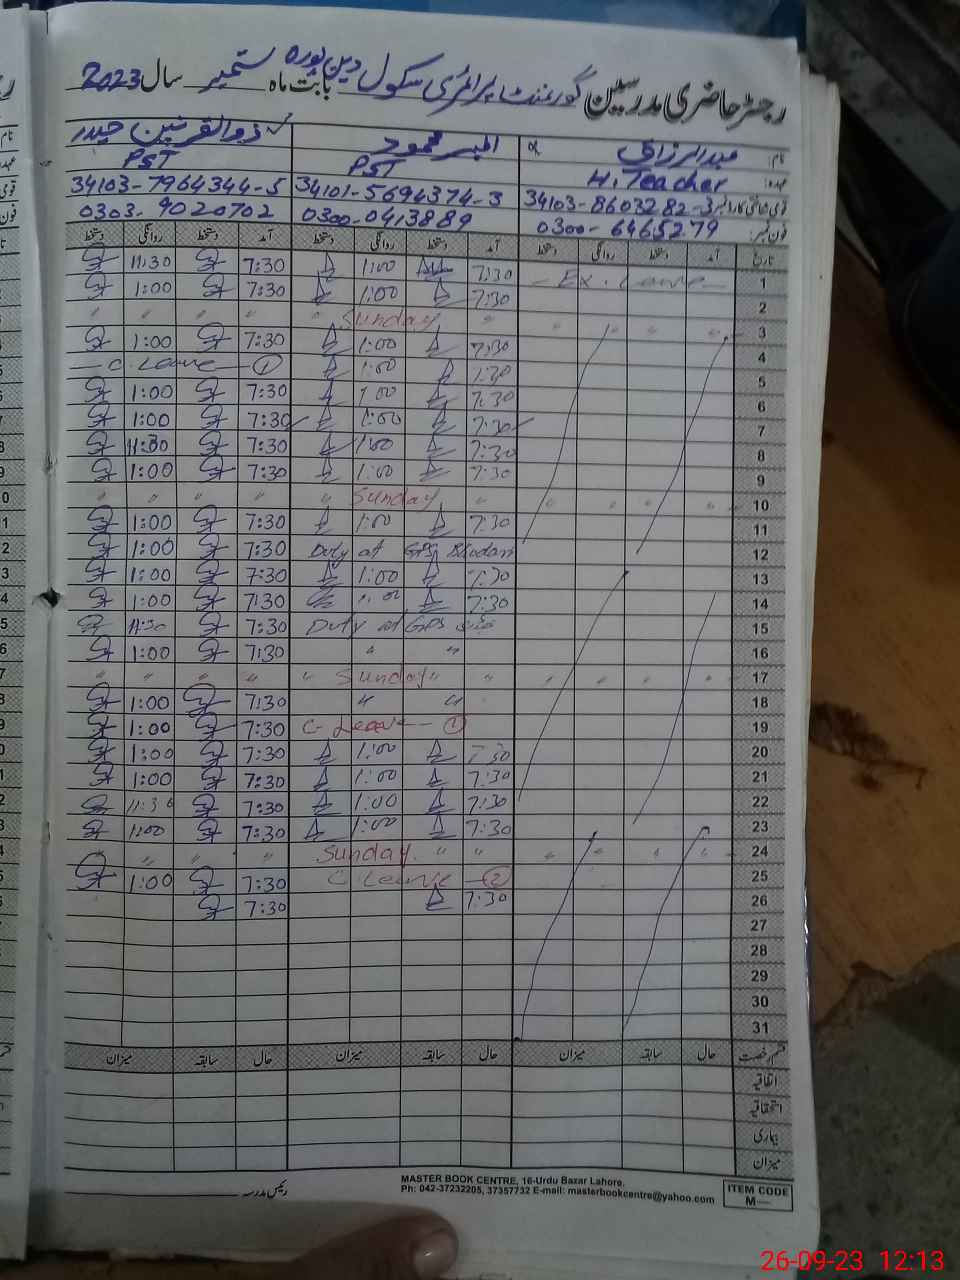 رجسٹر حاضری مدرسین گورنمنٹ پرائمری سکول دین پورہ بابت ماہ ستمبر سال 2023
نام: عبدالرزاق محمود ذوالقرنین حیدر
عہدہ: H. Teacher PST PST
قومی شناختی کارڈ نمبر 34103-8603282-3 34101-5694374-3 34103-7964344-5
فون نمبر: 0300-6465279 0300-0413889 0303-9020702
تاریخ آمد دستخط روانگی دستخط آمد دستخط روانگی دستخط آمد دستخط روانگی دستخط
1 Ex. Leave 7:30 1:00 7:30 11:30
2 7:30 1:00 7:30 1:00
3 " " " " " Sunday " " " " "
4 7:30 1:00 7:30 1:00
5 7:30 1:00 C. Leave ①
6 7:30 1:00 7:30 1:00
7 7:30 1:00 7:30 1:00
8 7:30 1:00 7:30 11:30
9 7:30 1:00 7:30 1:00
10 " " " " " Sunday " " " " "
11 7:30 1:00 7:30 1:00
12 Duty at GPS 7:30 1:00
13 7:30 1:00 7:30 1:00
14 7:30 1:00 7:30 1:00
15 Duty at GPS 7:30 11:30
16 " " 7:30 1:00
17 " " " " " Sunday " " " " " "
18 " " 7:30 1:00
19 C. Leave ① 7:30 1:00
20 7:30 1:00 7:30 1:00
21 7:30 1:00 7:30 1:00
22 7:30 1:00 7:30 11:30
23 7:30 1:00 7:30 1:00
24 " " " " Sunday " " " " "
25 C. Leave ② 7:30 1:00
26 7:30 7:30
27
28
29
30
31
قسم رخصت حال سابقہ میزان حال سابقہ میزان حال سابقہ میزان
اتفاقیہ
استحقاقیہ
بیماری
میزان
رئیس مدرسہ
MASTER BOOK CENTRE, 16-Urdu Bazar Lahore.
Ph: 042-37232205, 37357732 E-mail: masterbookcentre@yahoo.com
ITEM CODE
M—
26-09-23 12:13